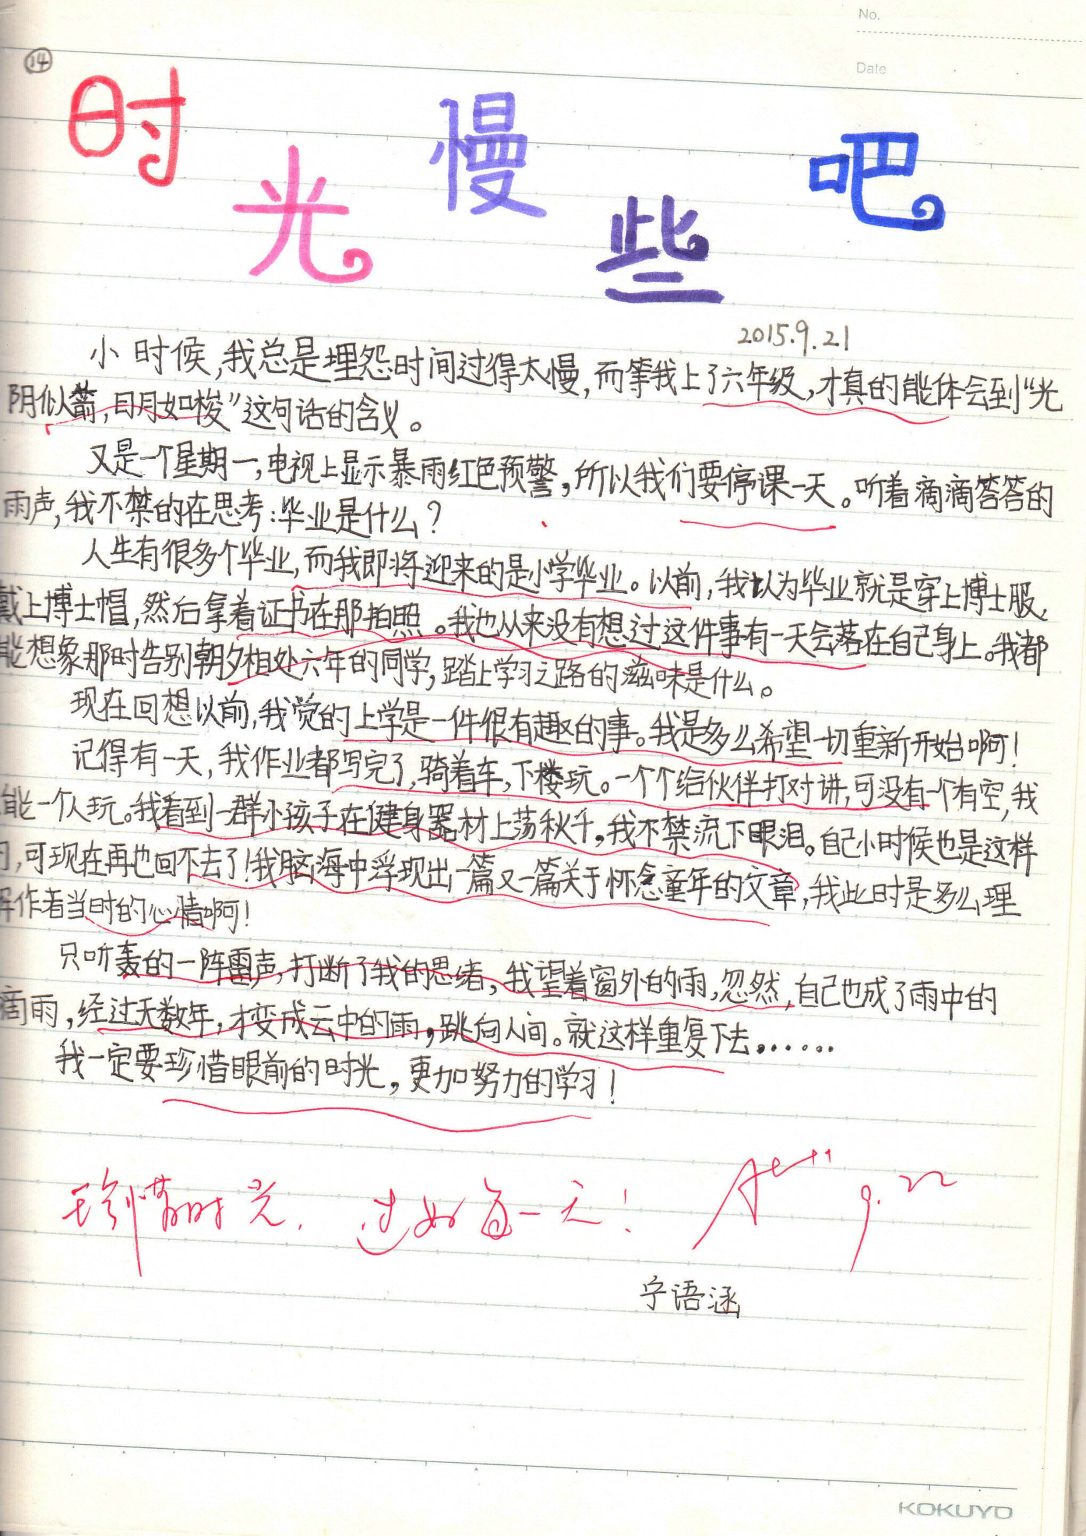 No.
Date
14
时光慢些吧
2015.9.21
小时候,我总是埋怨时间过得太慢,而等我上了六年级,才真的能体会到“光
阴似箭,日月如梭”这句话的含义。
又是一个星期一,电视上显示暴雨红色预警,所以我们要停课一天。听着滴滴答答的
雨声,我不禁的在思考:毕业是什么?
人生有很多个毕业,而我即将迎来的是小学毕业。以前,我以为毕业就是穿上博士服,
戴上博士帽,然后拿着证书在那拍照。我也从来没有想过这件事有一天会落在自己身上。我都
能想象那时告别朝夕相处六年的同学,踏上学习之路的滋味是什么。
现在回想以前,我觉的上学是一件很有趣的事。我是多么希望一切重新开始啊!
记得有一天,我作业都写完了,骑着车,下楼玩。一个个给伙伴打对讲,可没有一个有空,我
能一个人玩。我看到一群小孩子在健身器材上荡秋千,我不禁流下眼泪。自己小时候也是这样
,可现在再也回不去了!我脑海中浮现出一篇又一篇关于怀念童年的文章,我此时是多么理
解作者当时的心情啊!
只听轰的一阵雷声,打断了我的思绪,我望着窗外的雨,忽然,自己也成了雨中的
滴雨,经过无数年,才变成云中的雨,跳向人间。就这样重复下去......
我一定要珍惜眼前的时光,更加努力的学习!
珍惜时光,过好每一天! A++ 9.22
宁语涵
KOKUYO